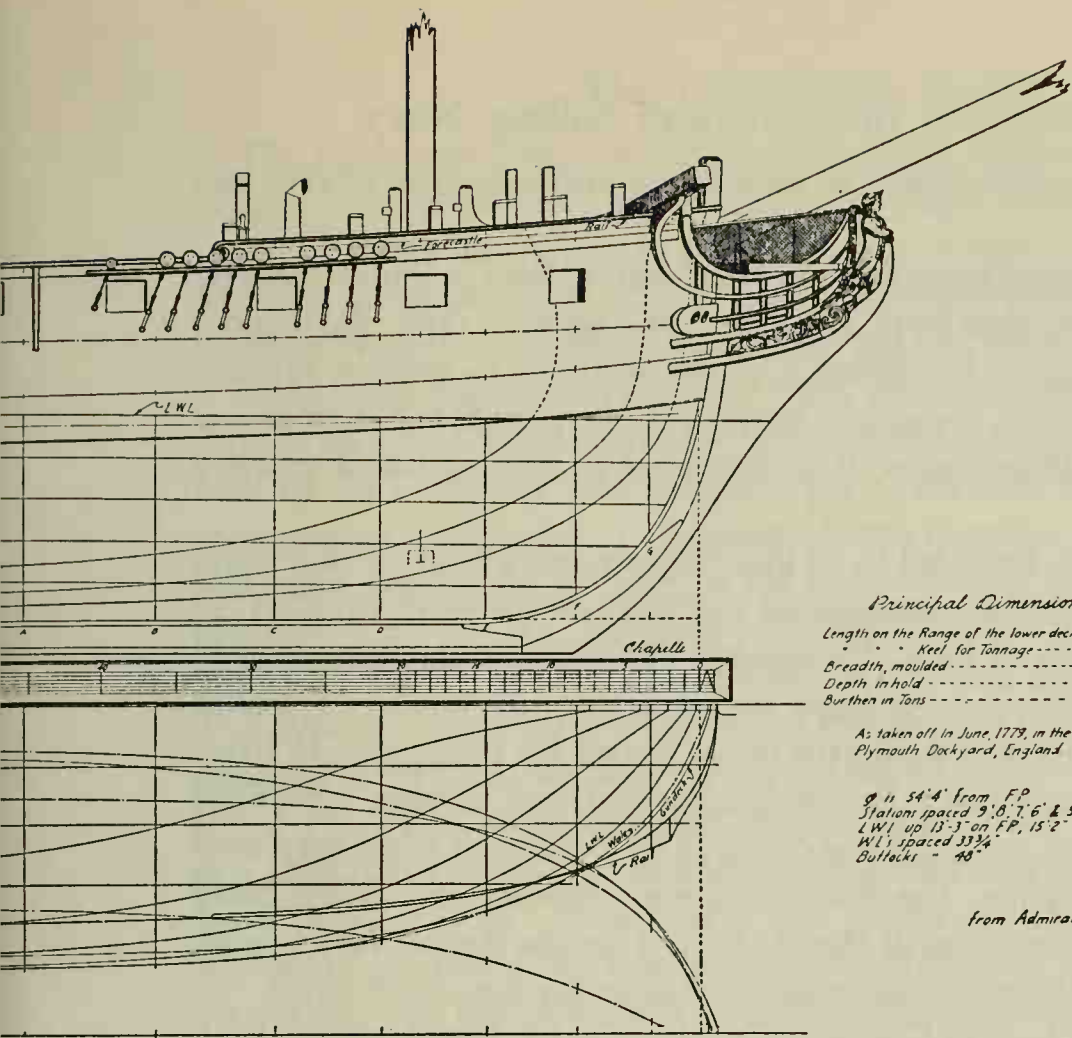 Forecastle
Rail
LWL
G
A B C D F
Chapelle
Principal Dimension
Length on the Range of the lower dec
" " " Keel for Tonnage
Breadth, moulded
Depth in hold
Burthen in Tons
As taken off in June, 1779, in the
Plymouth Dockyard, England
LWL
Wales
Rail
ϕ is 54'4" from FP
Stations spaced 9', 8', 7', 6' & 5
LWL up 13'-3" on FP, 15'2"
WL's spaced 33¾"
Buttocks " 48"
from Admira